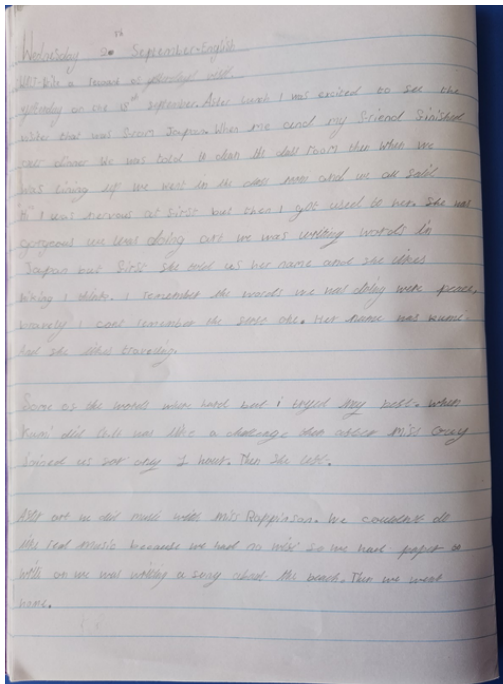 Wednesday 20th September-English
a recount of yesterdays visit
yesterday on the 19th september. After lunch I was excited to see the
visitor that was from Japan. When me and my friend finished
our dinner we was told to clean the class room then when we
was lining up we went in the class room and we all said
"hi" I was nervous at first but then I got used to her. She was
gorgeous we was doing art we was writing words in
Japan but first she told us her name and she likes
I think. I remember the words we was doing were peace,
bravely I cant remember the one. Her name was
And she likes travelling.
Some of the words when hard but i tryed my best. When
did it was like a challenge then after Miss
Joined us for only 1 hour. Then she left.
After art we did music with Miss. We couldn't do
the real music because we had no so we had paper to
write on we was writing a song about the beach. Then we went
home.